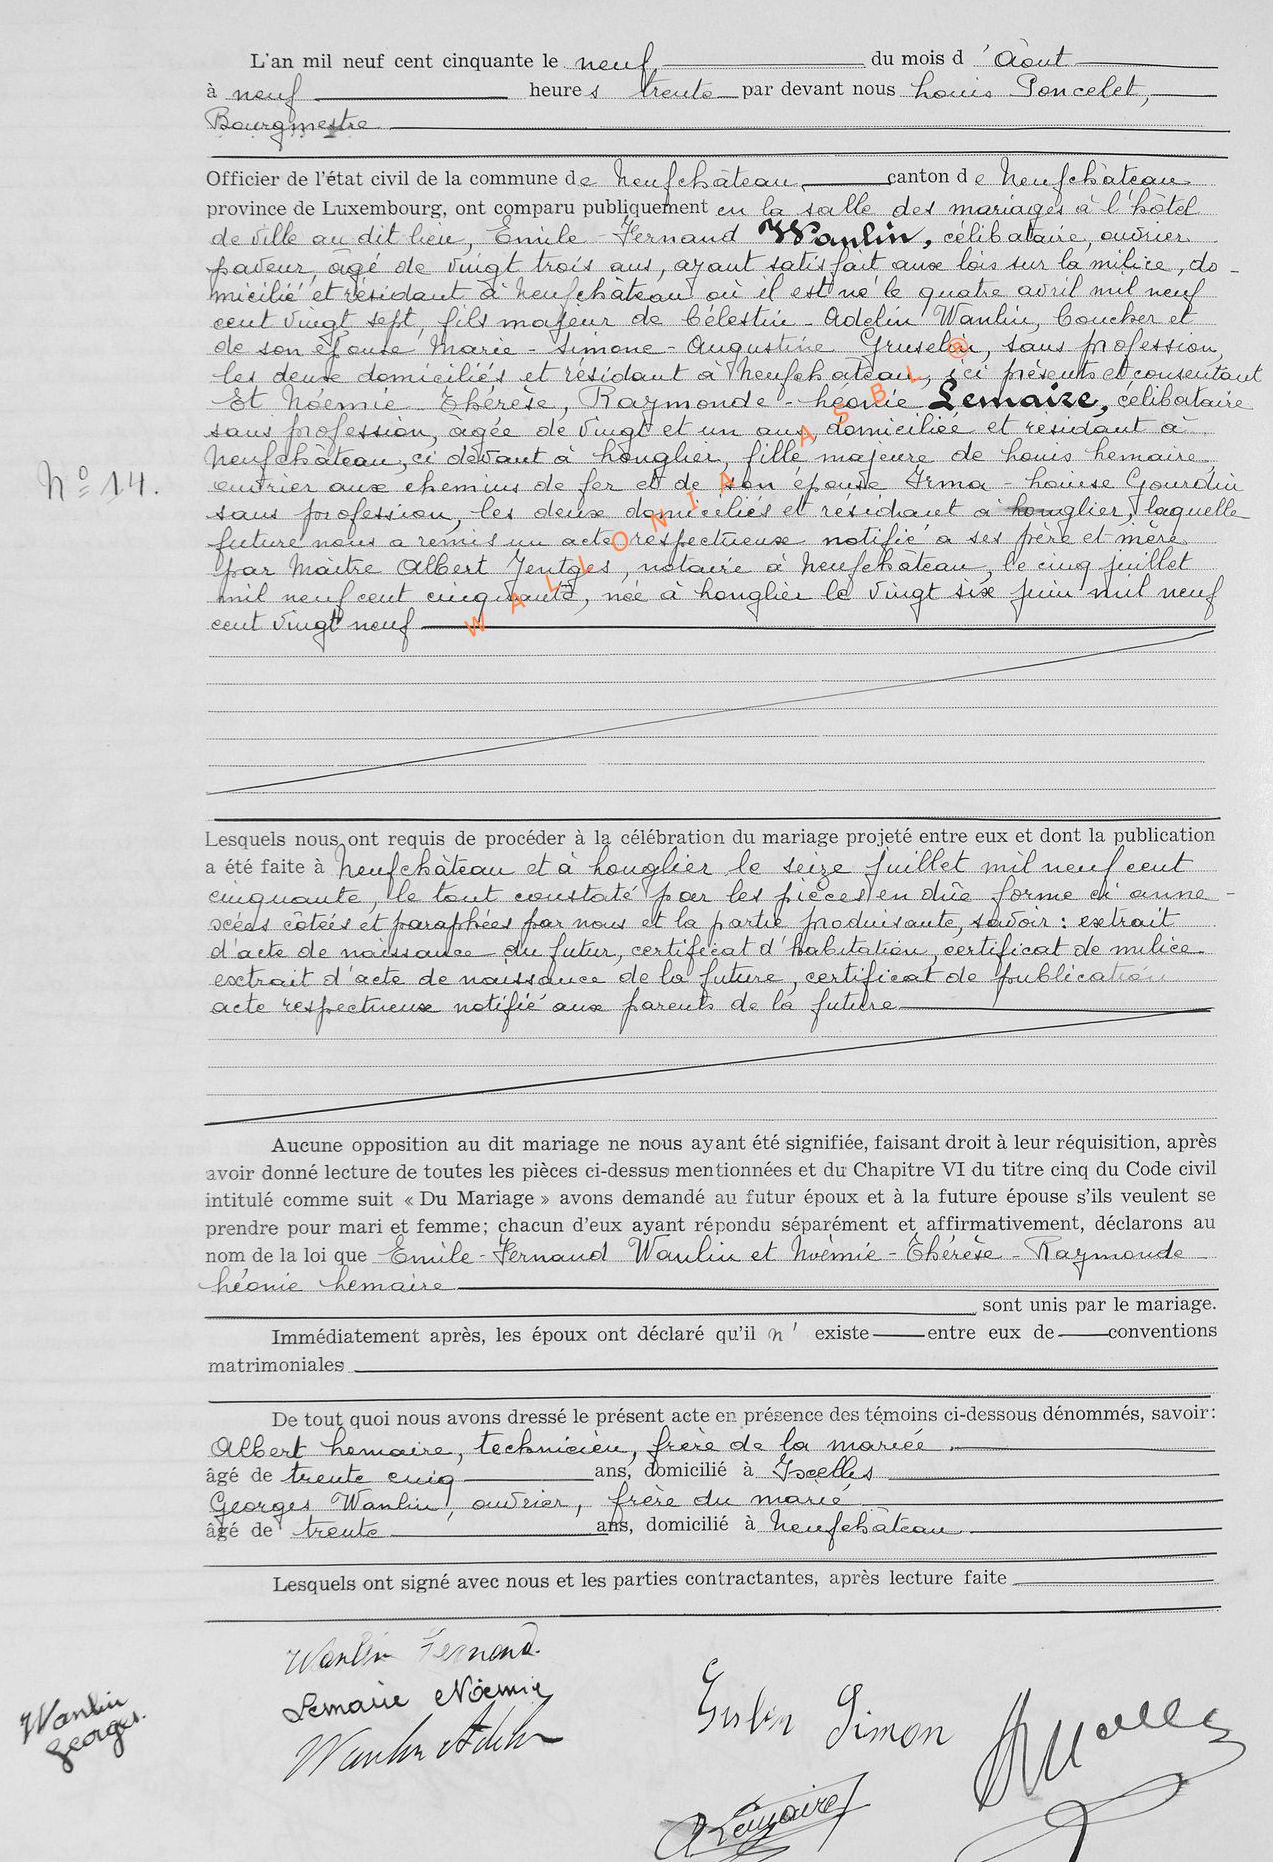 L'an mil neuf cent cinquante le neuf du mois d'Août
à neuf heures trente par devant nous Louis Poncelet,
Bourgmestre
Officier de l'état civil de la commune de Neufchâteau canton de Neufchâteau
province de Luxembourg, ont comparu publiquement en la salle des mariages à l'hôtel
de ville au dit lieu, Emile-Fernand Wanlin, célibataire, ouvrier
paveur, âgé de vingt trois ans, ayant satisfait aux lois sur la milice, do-
micilié et résidant à Neufchâteau où il est né le quatre avril mil neuf
cent vingt sept, fils majeur de Célestin-Adelin Wanlin, Coucher et
de son épouse Marie-Simone-Augustine Gruselin, sans profession,
les deux domiciliés et résidant à Neufchâteau, ici présents et consentant
Et Noémie-Thérèse, Raymonde-Léonie Lemaire, célibataire
sans profession, âgée de vingt et un ans, domiciliée et résidant à
Neufchâteau, ci devant à Longlier, fille majeure de Louis Lemaire,
N° 14.
ouvrier aux chemins de fer et de son épouse Irma-Louise Gourdin
sans profession, les deux domiciliés et résidant à Longlier, laquelle
future nous a remis un acte respectueux notifié à ses père et mère
par Maître Albert Jentges, notaire à Neufchâteau, le cinq juillet
mil neuf cent cinquante, née à Longlier le vingt six juin mil neuf
cent vingt neuf
WALLONIA ASBL @
Lesquels nous ont requis de procéder à la célébration du mariage projeté entre eux et dont la publication
a été faite à Neufchâteau et à Longlier le seize juillet mil neuf cent
cinquante, le tout constaté par les pièces en dûe forme ci anne-
xées côtées et paraphées par nous et la partie produisante, savoir : extrait
d'acte de naissance du futur, certificat d'habitation, certificat de milice
extrait d'acte de naissance de la future, certificat de publication
acte respectueux notifié aux parents de la future
Aucune opposition au dit mariage ne nous ayant été signifiée, faisant droit à leur réquisition, après
avoir donné lecture de toutes les pièces ci-dessus mentionnées et du Chapitre VI du titre cinq du Code civil
intitulé comme suit « Du Mariage » avons demandé au futur époux et à la future épouse s'ils veulent se
prendre pour mari et femme; chacun d'eux ayant répondu séparément et affirmativement, déclarons au
nom de la loi que Emile-Fernand Wanlin et Noémie-Thérèse-Raymonde
Léonie Lemaire
sont unis par le mariage.
Immédiatement après, les époux ont déclaré qu'il n'existe entre eux de conventions
matrimoniales
De tout quoi nous avons dressé le présent acte en présence des témoins ci-dessous dénommés, savoir:
Albert Lemaire, technicien, frère de la mariée.
âgé de trente cinq ans, domicilié à Ixelles
Georges Wanlin, ouvrier, frère du marié
âgé de trente ans, domicilié à Neufchâteau
Lesquels ont signé avec nous et les parties contractantes, après lecture faite
Wanlin Fernand.
Lemaire Noémie
Wanlin Adelin
Simon
Wanlin
Georges.
A Lemaire